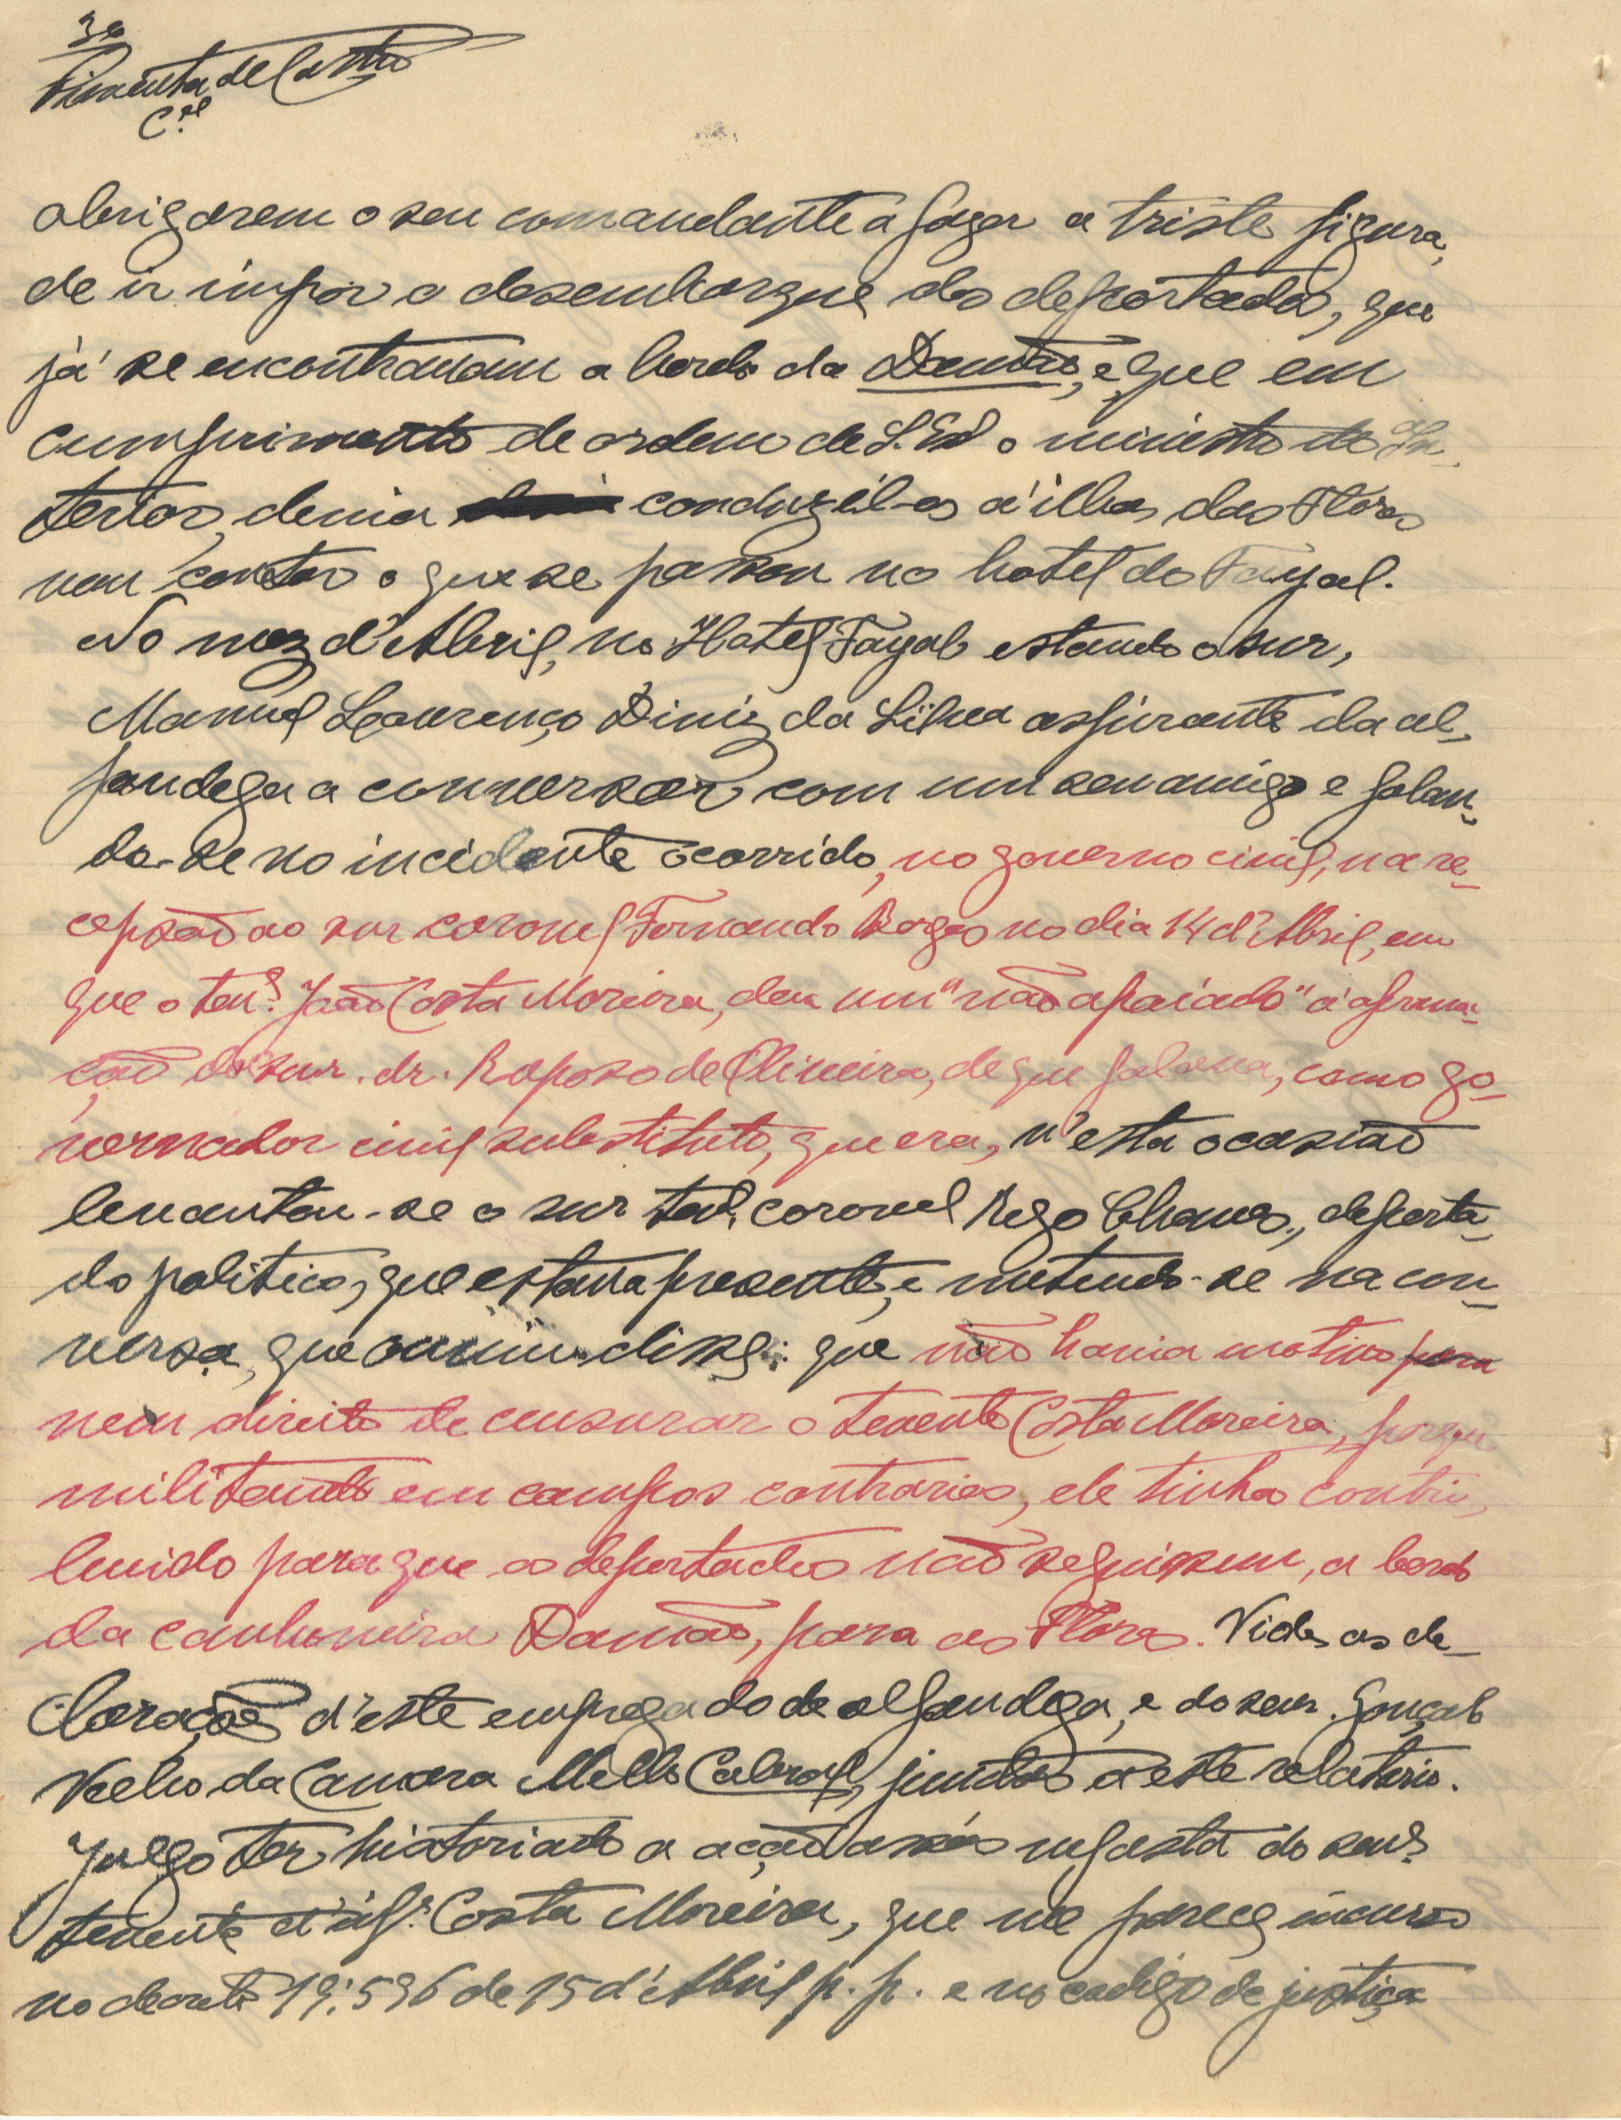 3º
Pimenta de Castro
C.el
obrigarem o seu comandante a fazer a triste figura,
de ir impor o desembarque dos deportados, que
já se encontravam a bordo da Damão, e que em
cumprimento de ordem de S. Ex.ª o ministro do In-
terior, devia conduzil-os á ilha das Flores
vou contar o que se passou no hotel do Fayal.
No mez d'Abril, no Hotel Fayal estando o snr,
Manuel Lourenço Diniz da Silva aspirante da al-
fandega a conversar com um seu amigo e falan-
do-se no incidente ocorrido, no governo civil, na re-
cepsão ao snr coronel Fernando Borges no dia 14 d'Abril, em
que o ten.e João Costa Moreira, deu um "não apoiado" á afirma-
ção do snr. dr. Raposo de Oliveira, de que falava, como go-
vernador civil substituto, que era, n'esta ocasião
levantou-se o snr ten.e coronel Rego Chaves, deporta-
do politico, que estava presente, e metendo-se na con-
versa, que ouviu, disse: que não havia motivo para
nem direito de censurar o tenente Costa Moreira, porque
militando em campos contrarios, ele tinha contri-
buido para que os deportados não seguissem, a bordo
da canhoneira Damão, para as Flores. Vide as de-
clarações d'este empregado de alfandega, e do snr. Gonçalo
Velho da Camara Mello Cabral, juntas a este relatorio.
Julgo ter historiado a acção assás nefasta do snr.
tenente d'inf.ª Costa Moreira, que me parece incurso
no decreto 19:596 de 15 d'Abril p. p. e no codigo de justiça